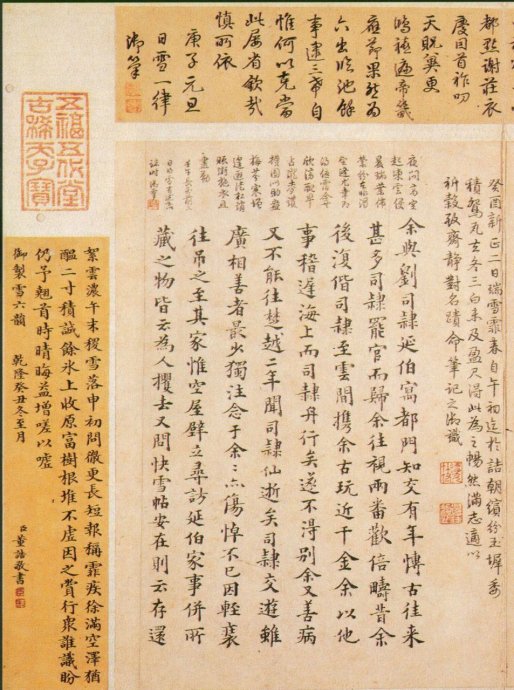 都點謝莊衣
慶因首祚叨
天貺冀更
遍帝畿
應節果然为
六出臨池餘
事逮三希自
惟何以克當
此屢省欽哉
慎所依
庚子元旦
日雪一律
御筆
五福五代堂
古稀天子寶
癸酉新正二日瑞雪霏春自午初迄於詰朝繽紛玉墀委
積鴛瓦去冬三白未及盈尺得此為之暢然滿志適以
祈穀致齋靜對名蹟命筆記之御識
余與劉司隸延伯寓都門知交有年博古往来
甚多司隸罷官而歸余往視兩番歡倍疇昔余
後復偕司隸至雲間攜余古玩近千金余以他
事稽遲海上而司隸舟行矣遂不得別余又善病
又不能往楚越二年聞司隸仙逝矣司隸交遊雖
廣相善者最少獨注念于余二亦傷悼不已因輕裝
往吊之至其家惟空屋壁立尋訪延伯家事併所
藏之物皆云為人攫去又問快雪帖安在則云存還
絮雲濃午末稷雪落申初問微更長短報稱霏疾徐滿空澤猶
醞二寸積誠餘氷上收原富樹根堆不虛因之賞行衆誰識盼
仍予翹首時晴晦益增嗟以噓
御製雪六韻 乾隆癸丑冬至月
臣董誥敬書